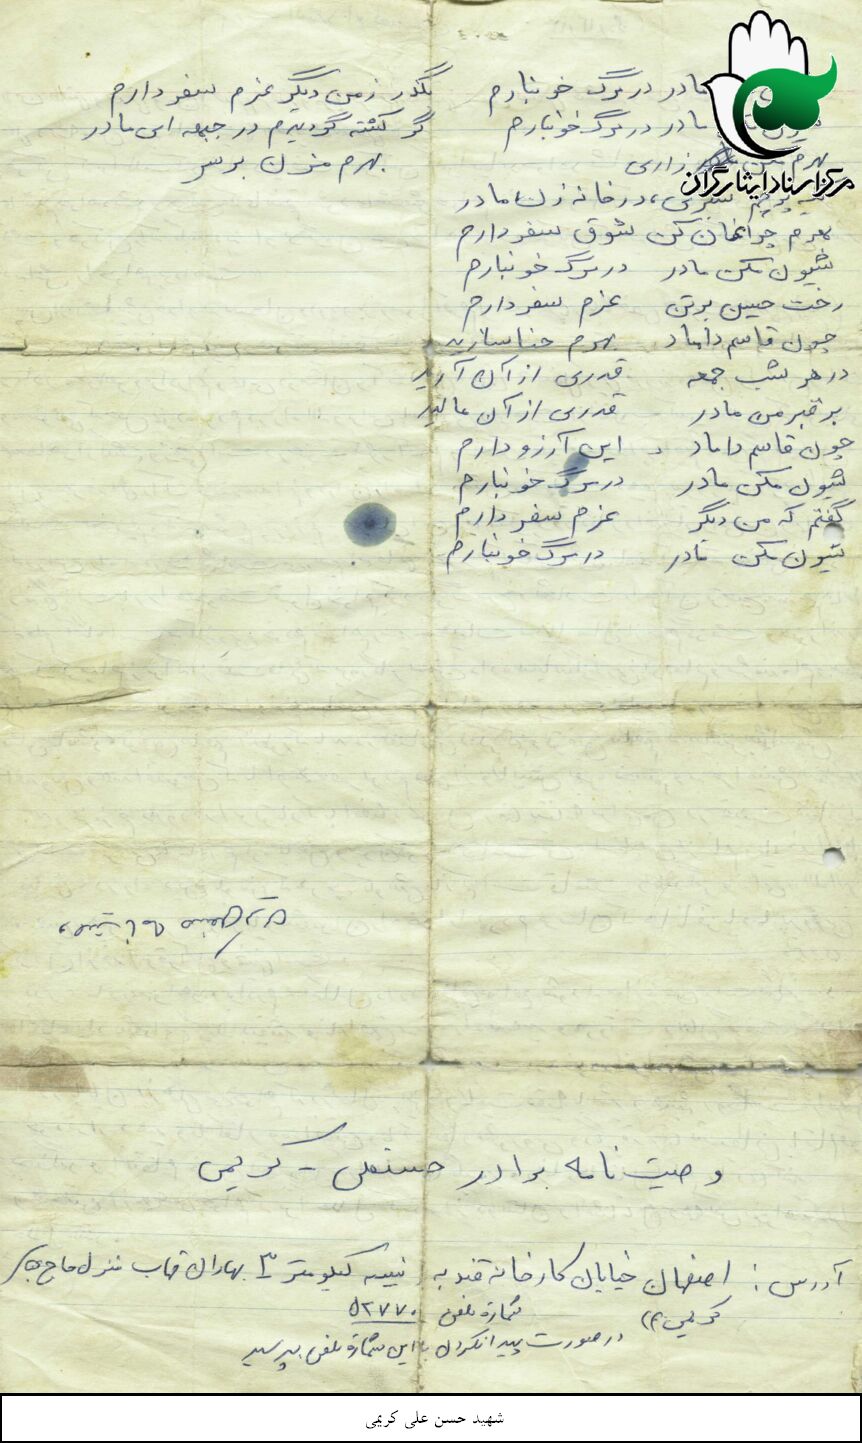 مرکز اسناد ایثارگران
مادر در مرگ خونبارم بگذر ز من دیگر عزم سفر دارم
مادر در مرگ خونبارم گر کشته گردیدم در جبهه ای مادر
بهرم مکن زاری بهرم مزن بر سر
در خانه زن مادر
بهرم چراغان کن شوق سفر دارم
شیون مکن مادر در مرگ خونبارم
رخت حسین بر تن عزم سفر دارم
چون قاسم داماد بهرم حنا سازید
در هر شب جمعه قدری از آن آرید
بر قبر من مادر قدری از آن مالید
چون قاسم داماد این آرزو دارم
شیون مکن مادر در مرگ خونبارم
گفتم که من دیگر عزم سفر دارم
شیون مکن مادر در مرگ خونبارم
وصیت نامه برادر حسنعلی - کریمی
آدرس: اصفهان خیابان کارخانه قند به کیلومتر ۳ بهاران قهاب منزل حاج
کریمی شماره تلفن ۵۲۷۷۰
در صورت پیدا نکردن با این شماره تلفن بپرسید
شهید حسن علی کریمی